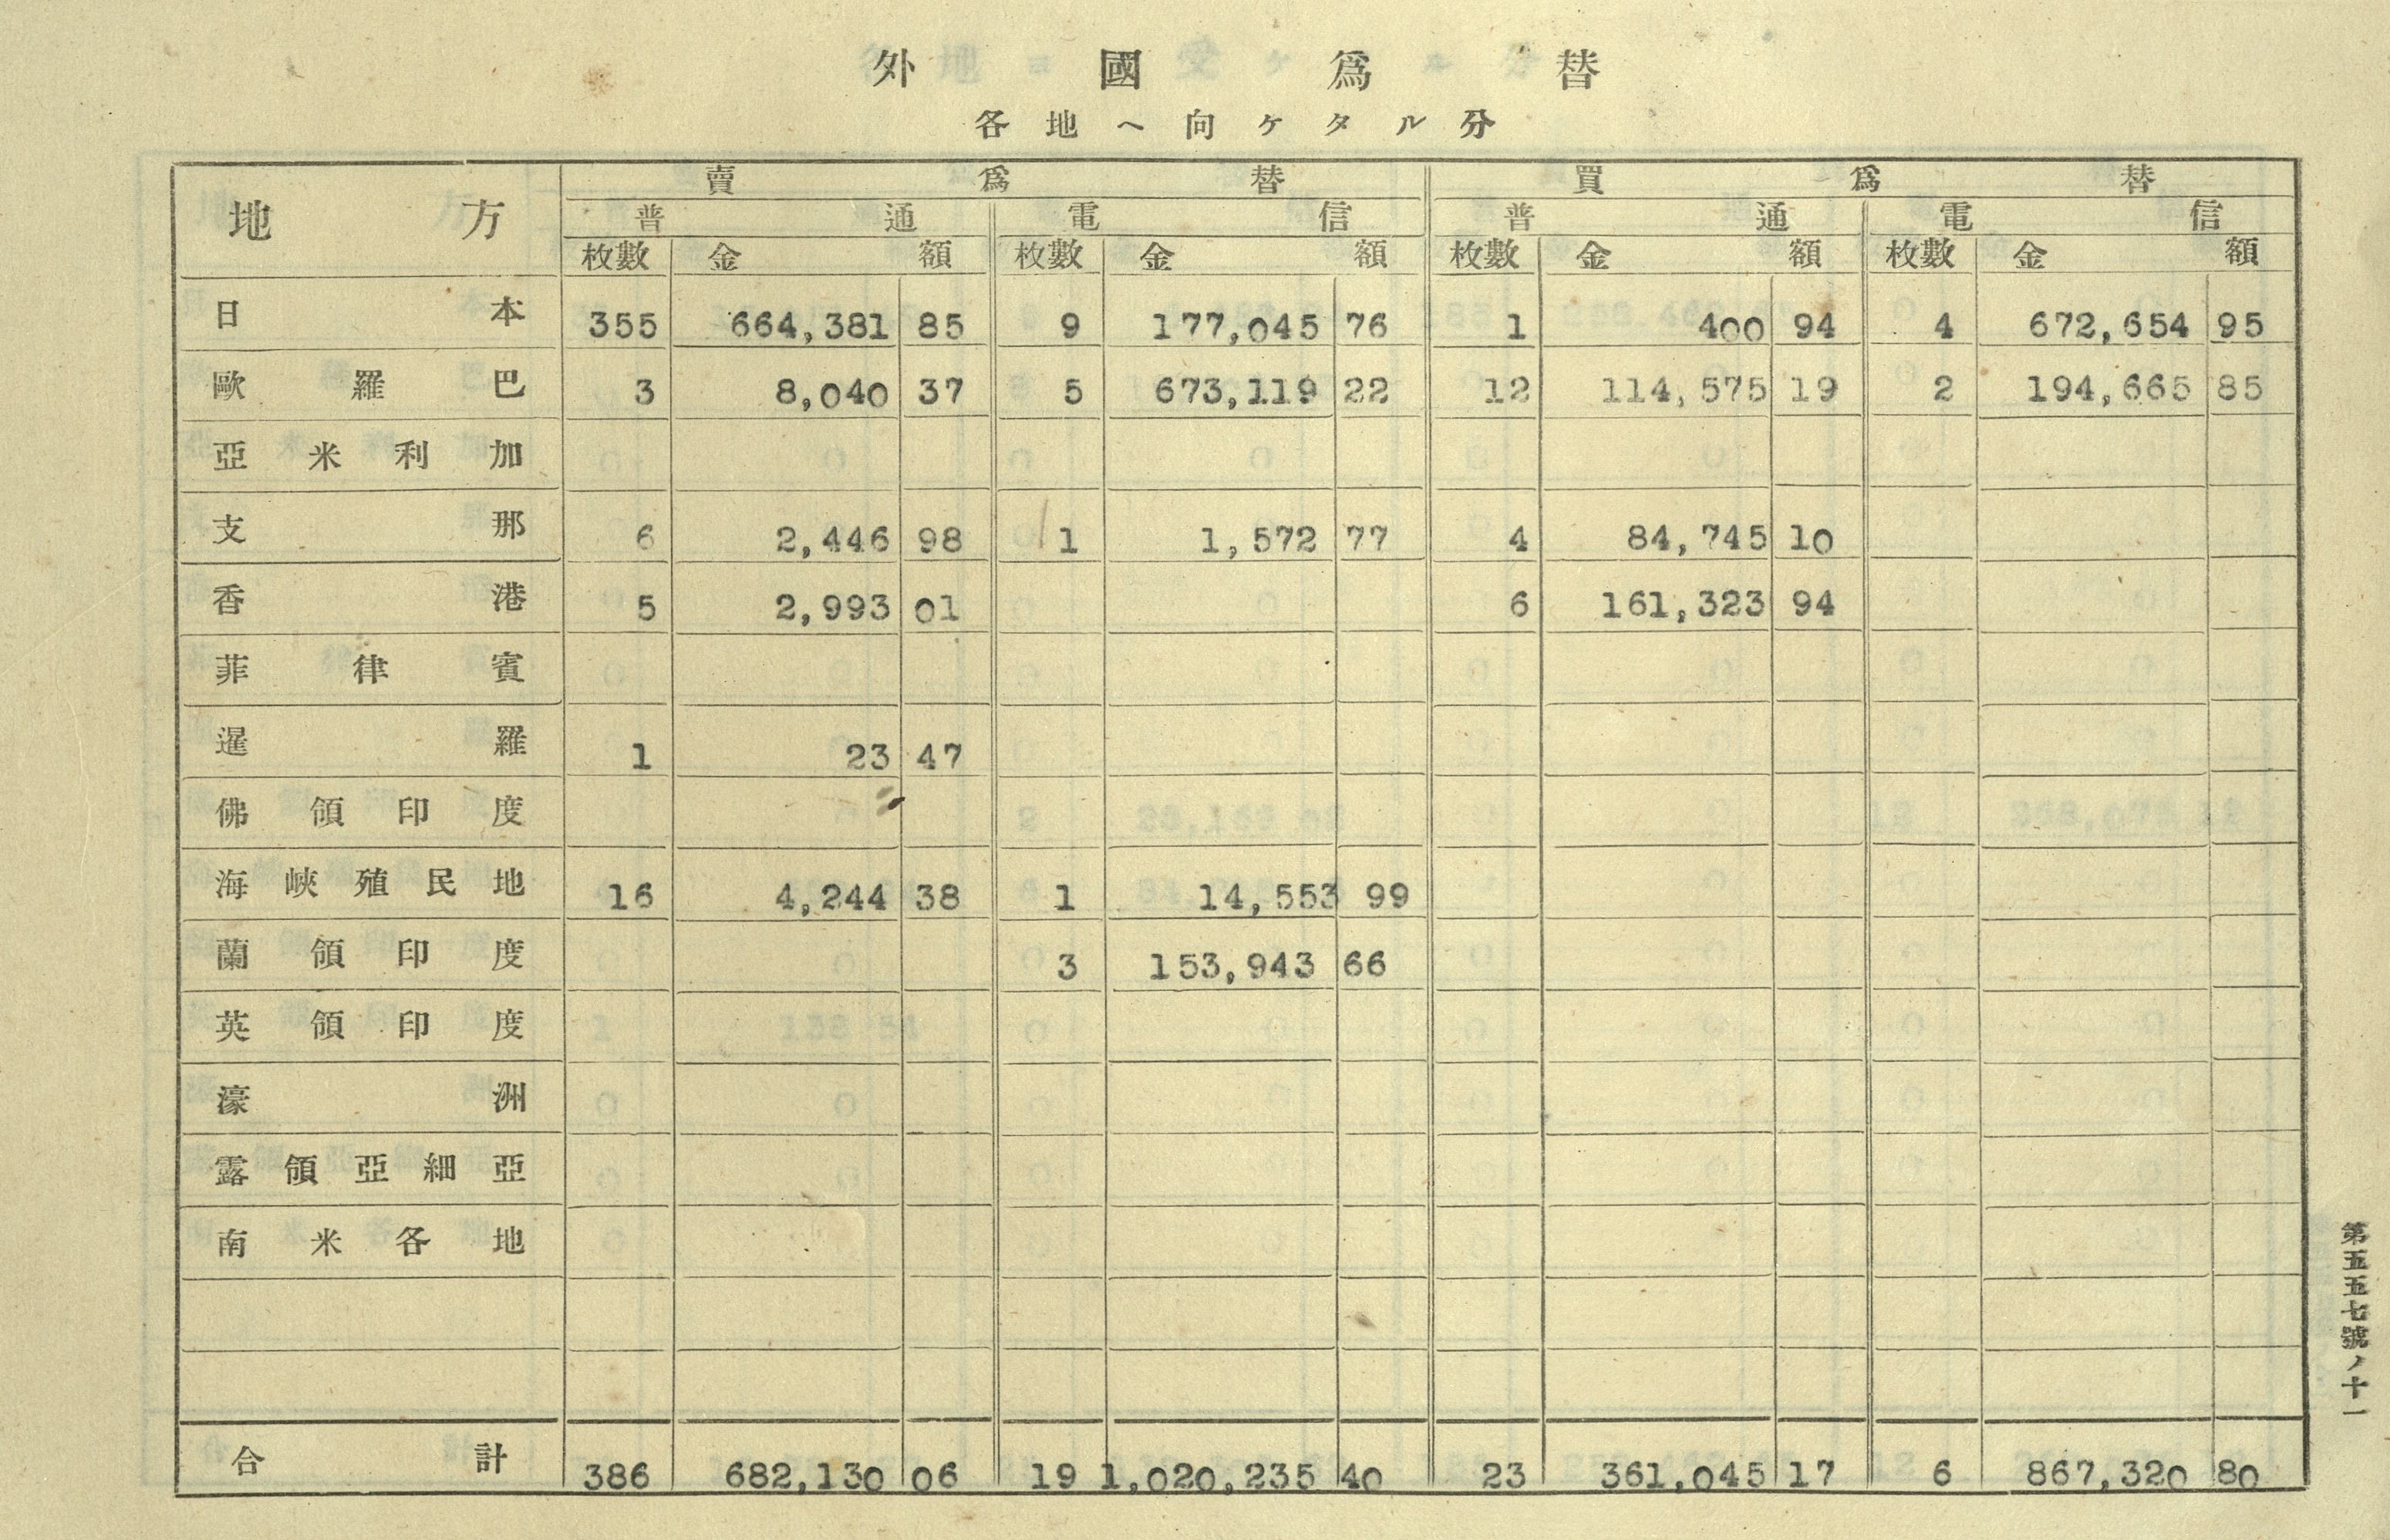 外國爲替
各地ヘ向ケタル分
地方 賣爲替 買爲替
普通 電信 普通 電信
枚數 金額 枚數 金額 枚數 金額 枚數 金額
日本 355 664,381 85 9 177,045 76 1 400 94 4 672,654 95
歐羅巴 3 8,040 37 5 673,119 22 12 114,575 19 2 194,665 85
亞米利加
支那 6 2,446 98 1 1,572 77 4 84,745 10
香港 5 2,993 01 6 161,323 94
菲律賓
暹羅 1 23 47
佛領印度
海峽殖民地 16 4,244 38 1 14,553 99
蘭領印度 3 153,943 66
英領印度
濠洲
露領亞細亞
南米各地
合計 386 682,130 06 19 1,020,235 40 23 361,045 17 6 867,320 80
第五五七號ノ十一